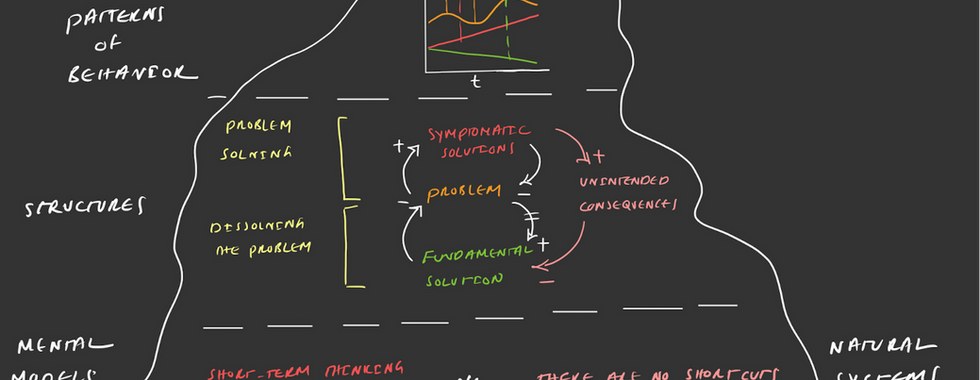 PATTERNS
OF
BEHAVIOR
t
PROBLEM
SOLVING
+
SYMPTOMATIC
SOLUTIONS
+
UNINTENDED
CONSEQUENCES
PROBLEM
STRUCTURES
DISSOLVING
THE PROBLEM
+
FUNDAMENTAL
SOLUTION
MENTAL
MODELS
SHORT-TERM THINKING
THERE ARE NO SHORTCUTS
NATURAL
SYSTEMS